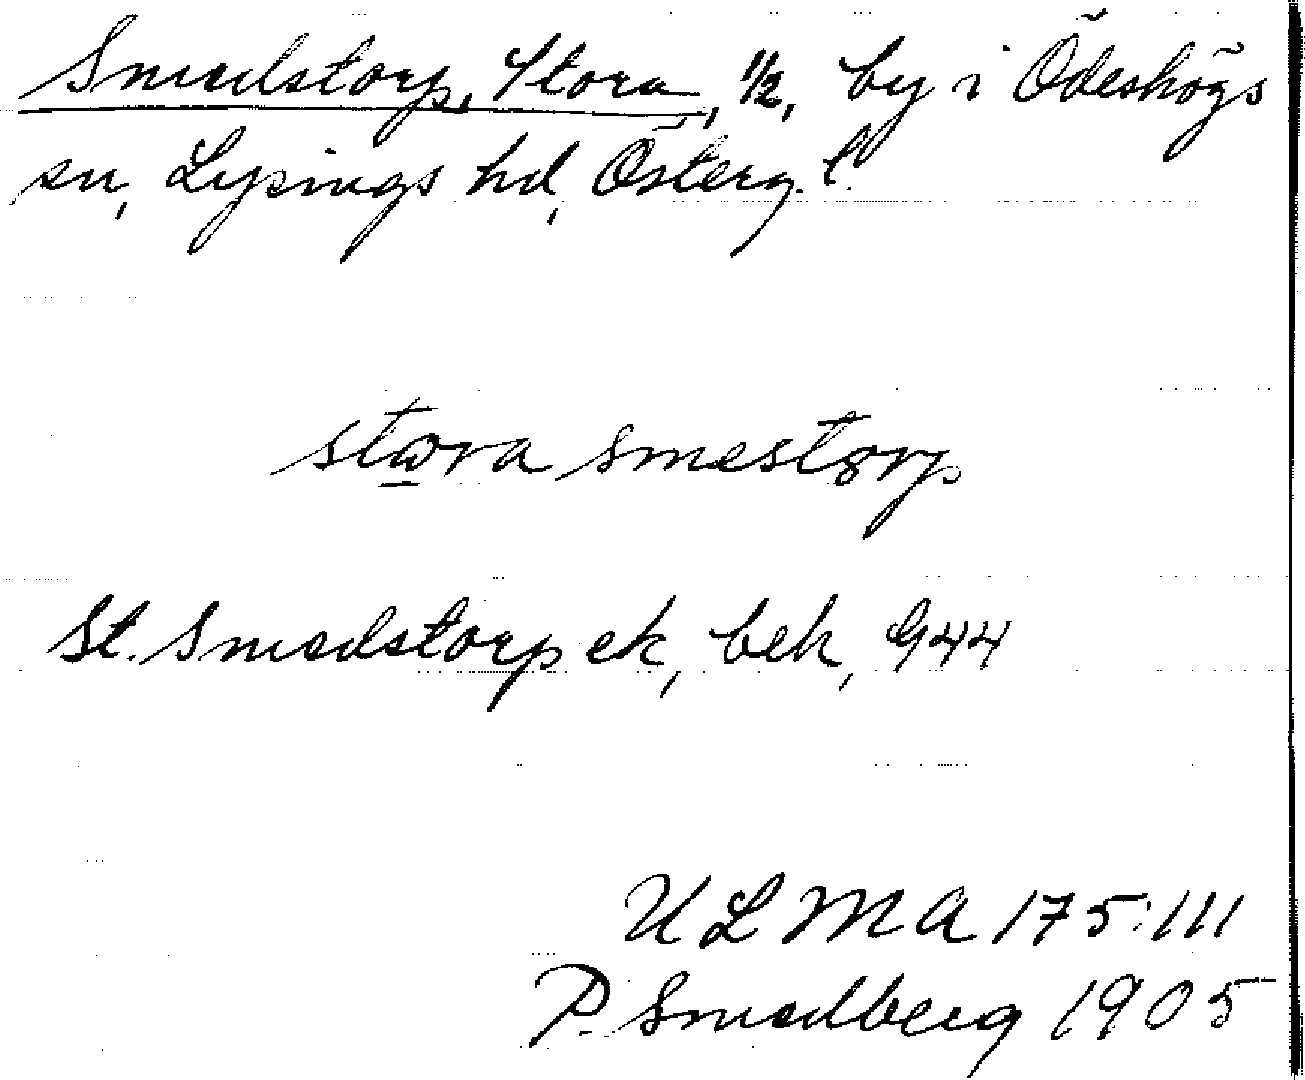 Smedstorp, Stora, 1/2, by i Ödeshögs
sn, Lysings hd, Österg. l.
stora smestorp
St. Smedstorp ek, bek, G44
ULMA 175:111
P. Smedberg 1905